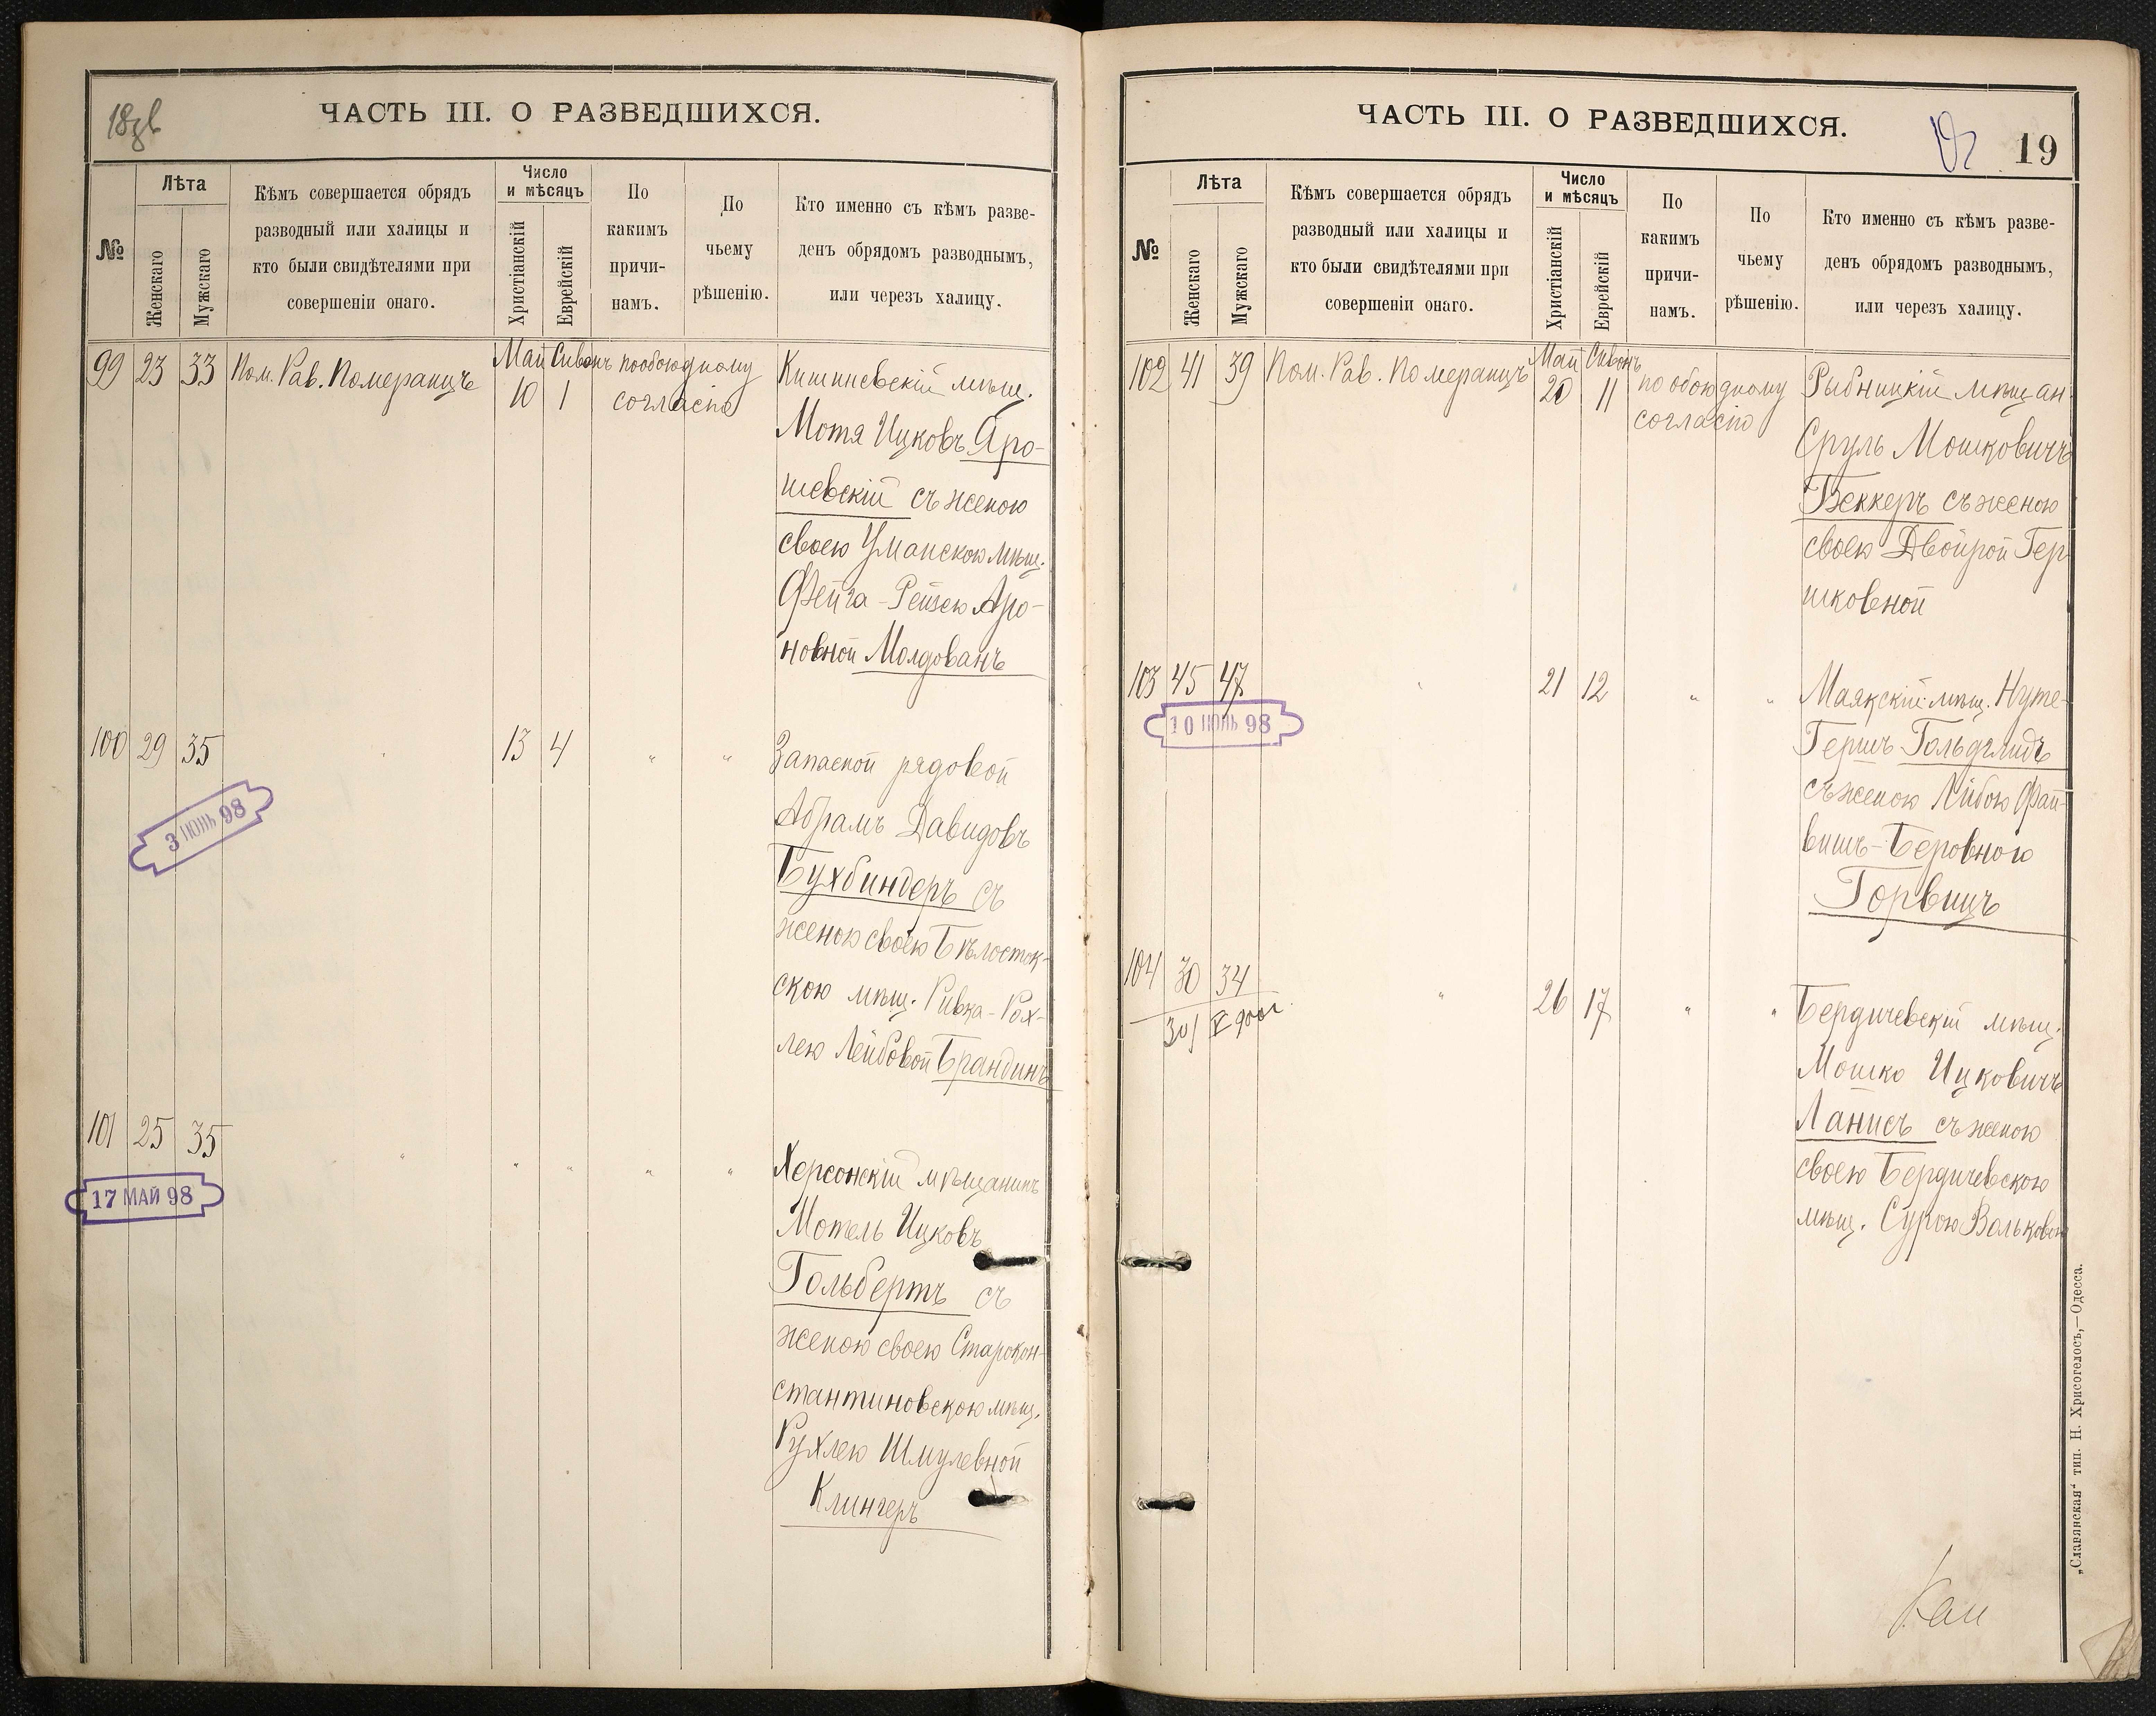 18зв
ЧАСТЬ III. О РАЗВЕДШИХСЯ.
№
Лѣта
Женскаго
Мужскаго
Кѣмъ совершается обрядъ
разводный или халицы и
кто были свидѣтелями при
совершеніи онаго.
Число
и мѣсяцъ
Христіанскій
Еврейскій
По
какимъ
причи-
намъ.
По
чьему
рѣшенію.
Кто именно съ кѣмъ разве-
денъ обрядомъ разводнымъ,
или черезъ халицу.
99 23 33 Пом. Рав. Померанцъ
Маи Сиванъ
10 1
по обоюдному
согласію
Кишиневскій мѣщ.
Мотя Ицковъ Яро-
шевскій съ женою
своею Уманскою мѣщ.
Фейга-Рейзею Аро-
новной Молдованъ
100 29 35 13 4 " "
Запасной рядовой
Абрамъ Давидовъ
Бухбиндеръ съ
женою своею Бѣлосток-
скою мѣщ. Ривка-Рох-
лею Лейбовой Брандинъ
3 ІЮНЬ 98
101 25 35 " " " " "
Херсонскій мѣщанинъ
Мотель Ицковъ
Гольбертъ съ
женою своею Старокон-
стантиновскою мѣщ.
Рухлею Шмулевной
Клингеръ
17 МАЙ 98
ЧАСТЬ III. О РАЗВЕДШИХСЯ.
19
№
Лѣта
Женскаго
Мужскаго
Кѣмъ совершается обрядъ
разводный или халицы и
кто были свидѣтелями при
совершеніи онаго.
Число
и мѣсяцъ
Христіанскій
Еврейскій
По
какимъ
причи-
намъ.
По
чьему
рѣшенію.
Кто именно съ кѣмъ разве-
денъ обрядомъ разводнымъ,
или черезъ халицу.
102 41 39 Пом. Рав. Померанцъ
Маи Сиванъ
20 11
по обоюдному
согласію
Рыбницкій мѣщан.
Сруль Мошковичъ
Беккеръ съ женою
своею Двойрой Гер
шковной
103 45 47 " 21 12 " "
Маякскій мѣщ. Нуте-
Гершъ Гольдшмидъ
съ женою Либою Фай-
вишъ-Беровною
Горвицъ
10 ІЮНЬ 98
104 30 34 " 26 17 " "
Бердичевскій мѣщ.
Мошко Ицковичъ
Ланисъ съ женою
своею Бердичевскою
мѣщ. Сурою Вольковою
„Славянская“ тип. Н. Хрисогелосъ,—Одесса.